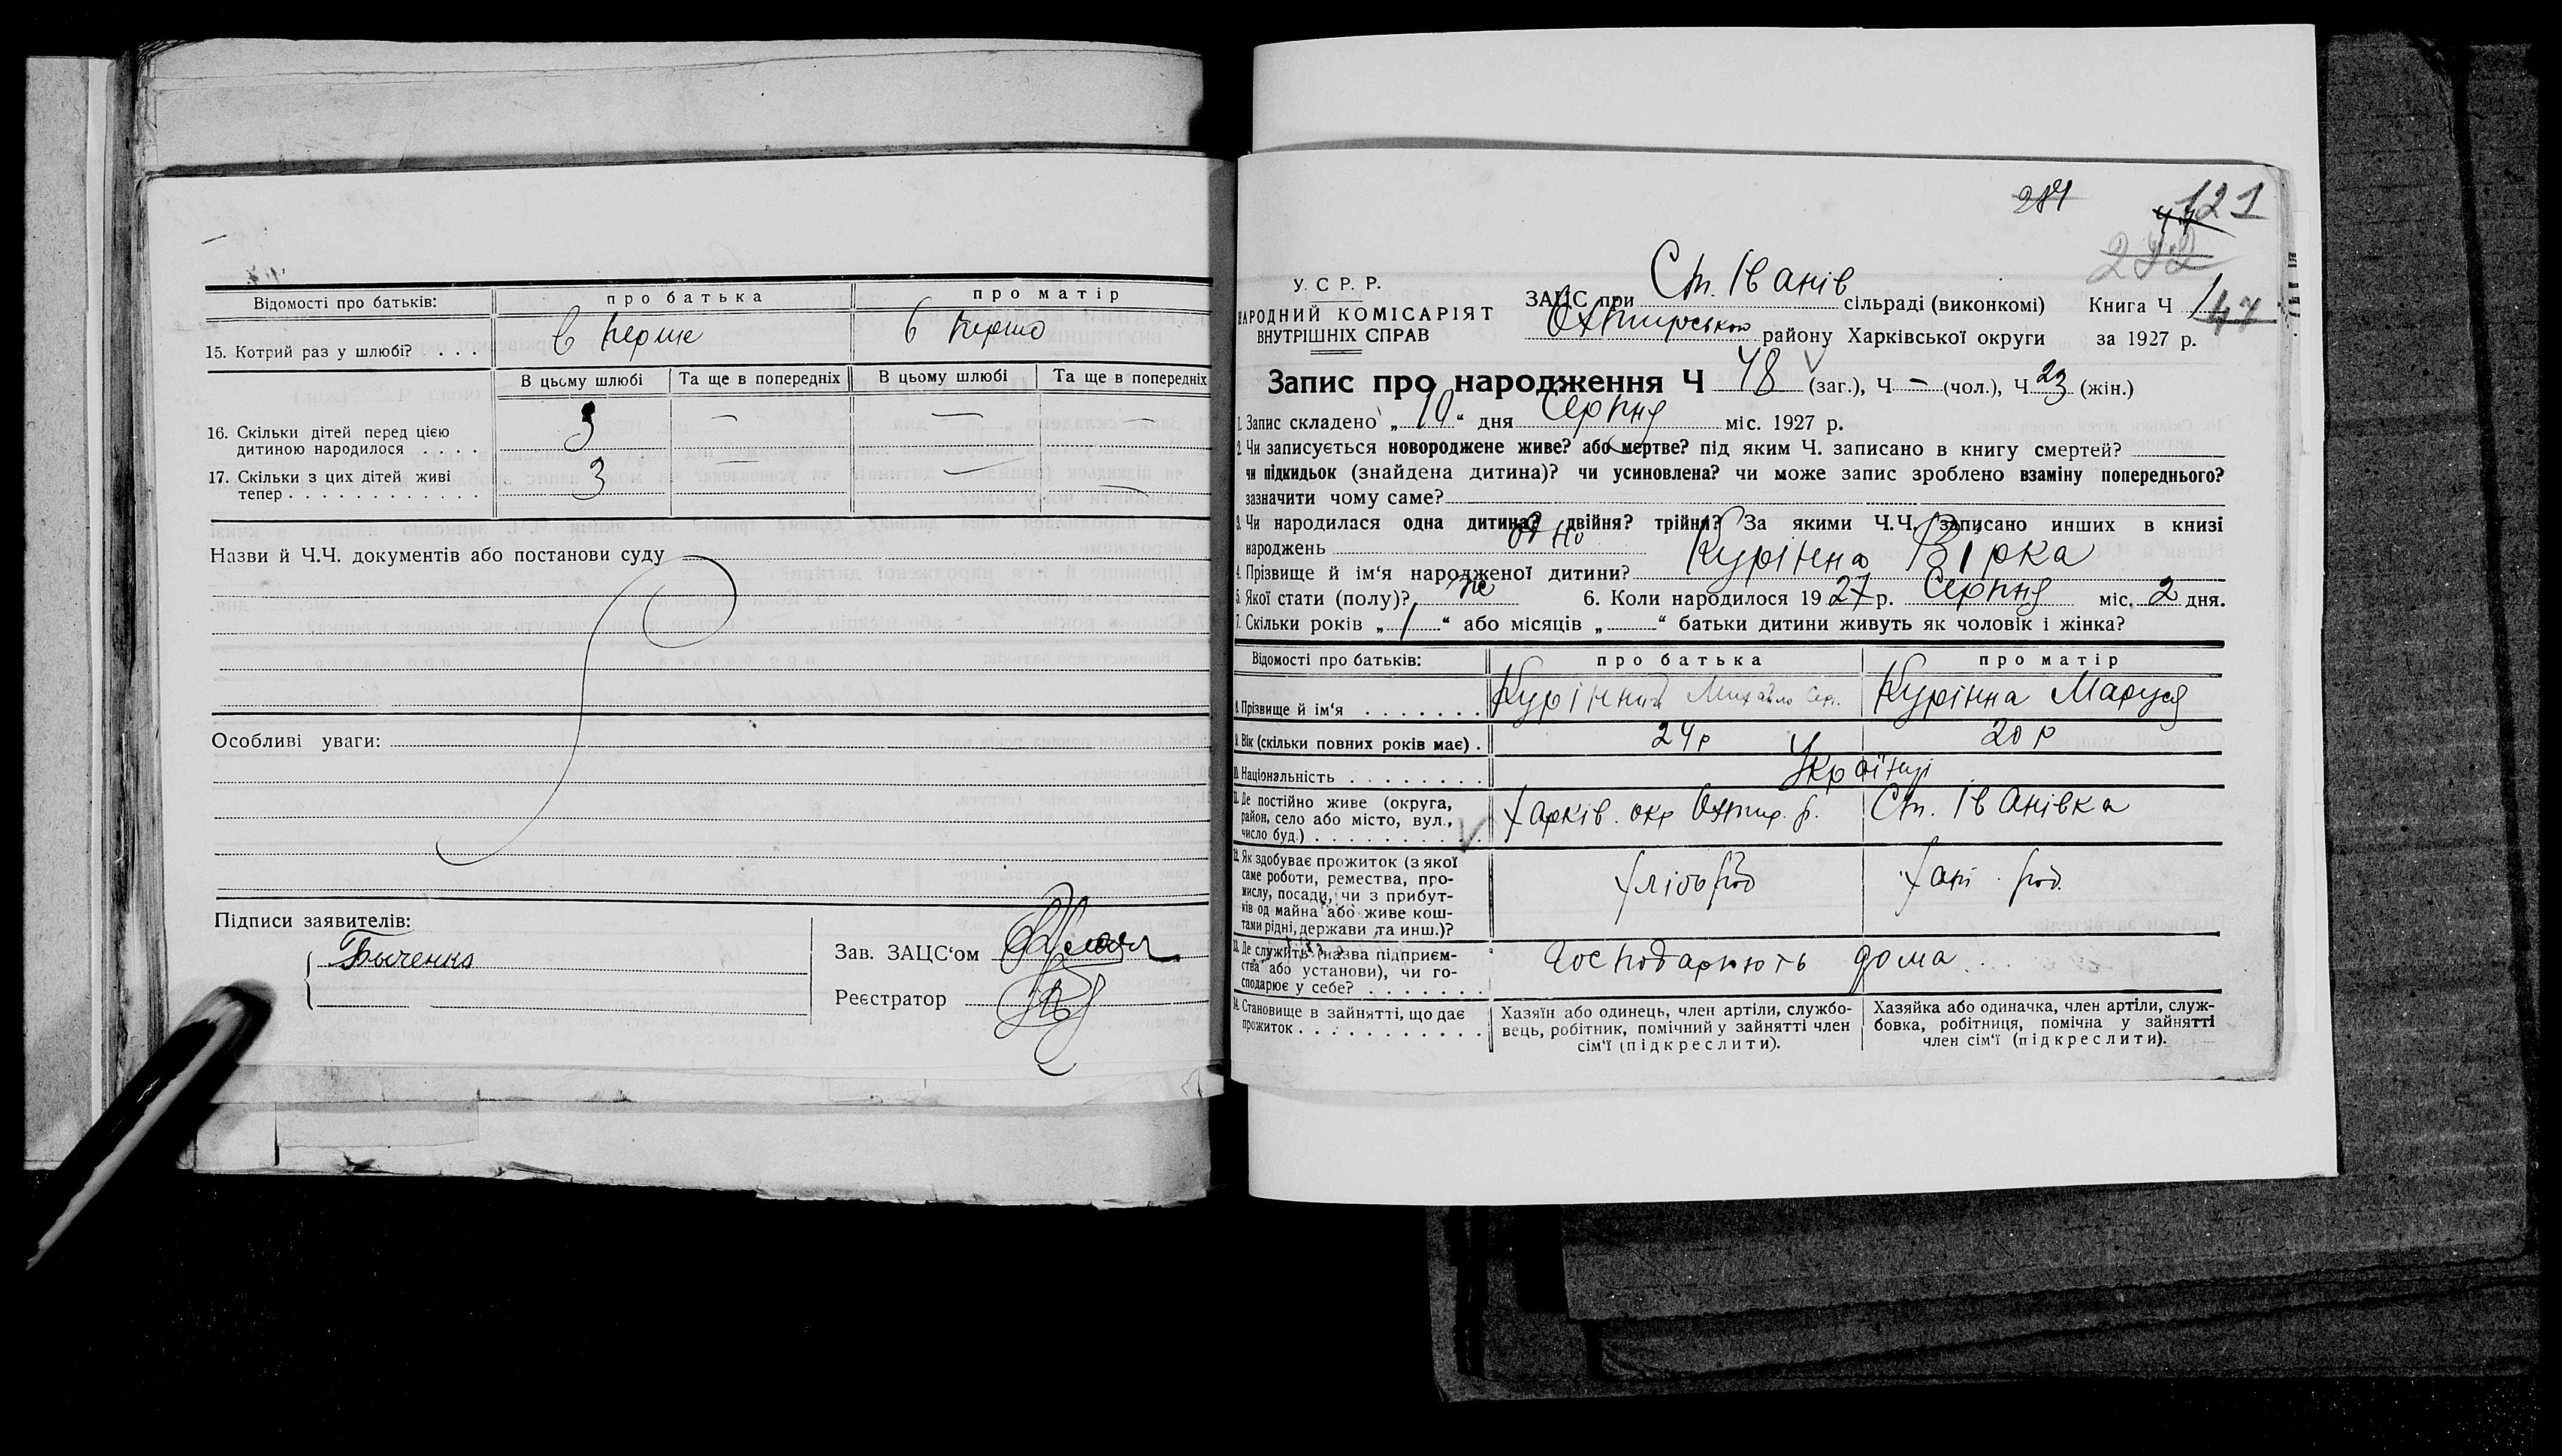 Відомості про батьків: про батька про матір
15. Котрий раз у шлюбі? . . . в перше в перше
В цьому шлюбі Та ще в попередніх В цьому шлюбі Та ще в попередніх
16. Скільки дітей перед цією
дитиною народилося . . . . 3 — — —
17. Скільки з цих дітей живі
тепер . . . . . . . . . . . . 3 — — —
Назви й Ч.Ч. документів або постанови суду
Особливі уваги:
Підписи заявителів:
Быченко
Зав. ЗАЦС'ом
Реєстратор
281
121
272
У. С. Р. Р.
НАРОДНИЙ КОМІСАРІЯТ
ВНУТРІШНІХ СПРАВ
ЗАЦС при Ст. Іванів сільраді (виконкомі) Книга Ч 1
47
Охтирського району Харківської округи за 1927 р.
Запис про народження Ч 48 (заг.), Ч — (чол.), Ч 23 (жін.)
1. Запис складено „10“ дня Серпня міс. 1927 р.
2. Чи записується новороджене живе? або мертве? під яким Ч. записано в книгу смертей?
чи підкидьок (знайдена дитина)? чи усиновлена? чи може запис зроблено взаміну попереднього?
зазначити чому саме?
3. Чи народилася одна дитина? двійня? трійня? За якими Ч.Ч. записано инших в книзі
народжень одно
4. Прізвище й ім'я народженої дитини? Курінна Вірка
5. Якої стати (полу)? же 6. Коли народилося 1927 р. Серпня міс. 2 дня.
7. Скільки років „1“ або місяців „ “ батьки дитини живуть як чоловік і жінка?
Відомості про батьків: про батька про матір
8. Прізвище й ім'я . . . . . . . Курінний Михайло Сер. Курінна Маруся
9. Вік (скільки повних років має) . 24 р 20 р
10. Національність . . . . . . . . Українці
11. Де постійно живе (округа,
район, село або місто, вул.,
число буд.) . . . . . . . . . . Харків. окр Охтир. р. Ст. Іванівка
12. Як здобуває прожиток (з якої
саме роботи, ремества, про-
мислу, посади, чи з прибут-
ків од майна або живе кош-
тами рідні, держави та инш.)? хлібороб
13. Де служить (назва підприєм-
ства або установи), чи го-
сподарює у себе? . . . . . . . Господарюють дома
14. Становище в зайнятті, що дає
прожиток . . . . . . . . . . .
Хазяїн або одинець, член артіли, службо-
вець, робітник, помічний у зайнятті член
сім'ї (підкреслити).
Хазяйка або одиначка, член артіли, служ-
бовка, робітниця, помічна у зайнятті
член сім'ї (підкреслити).